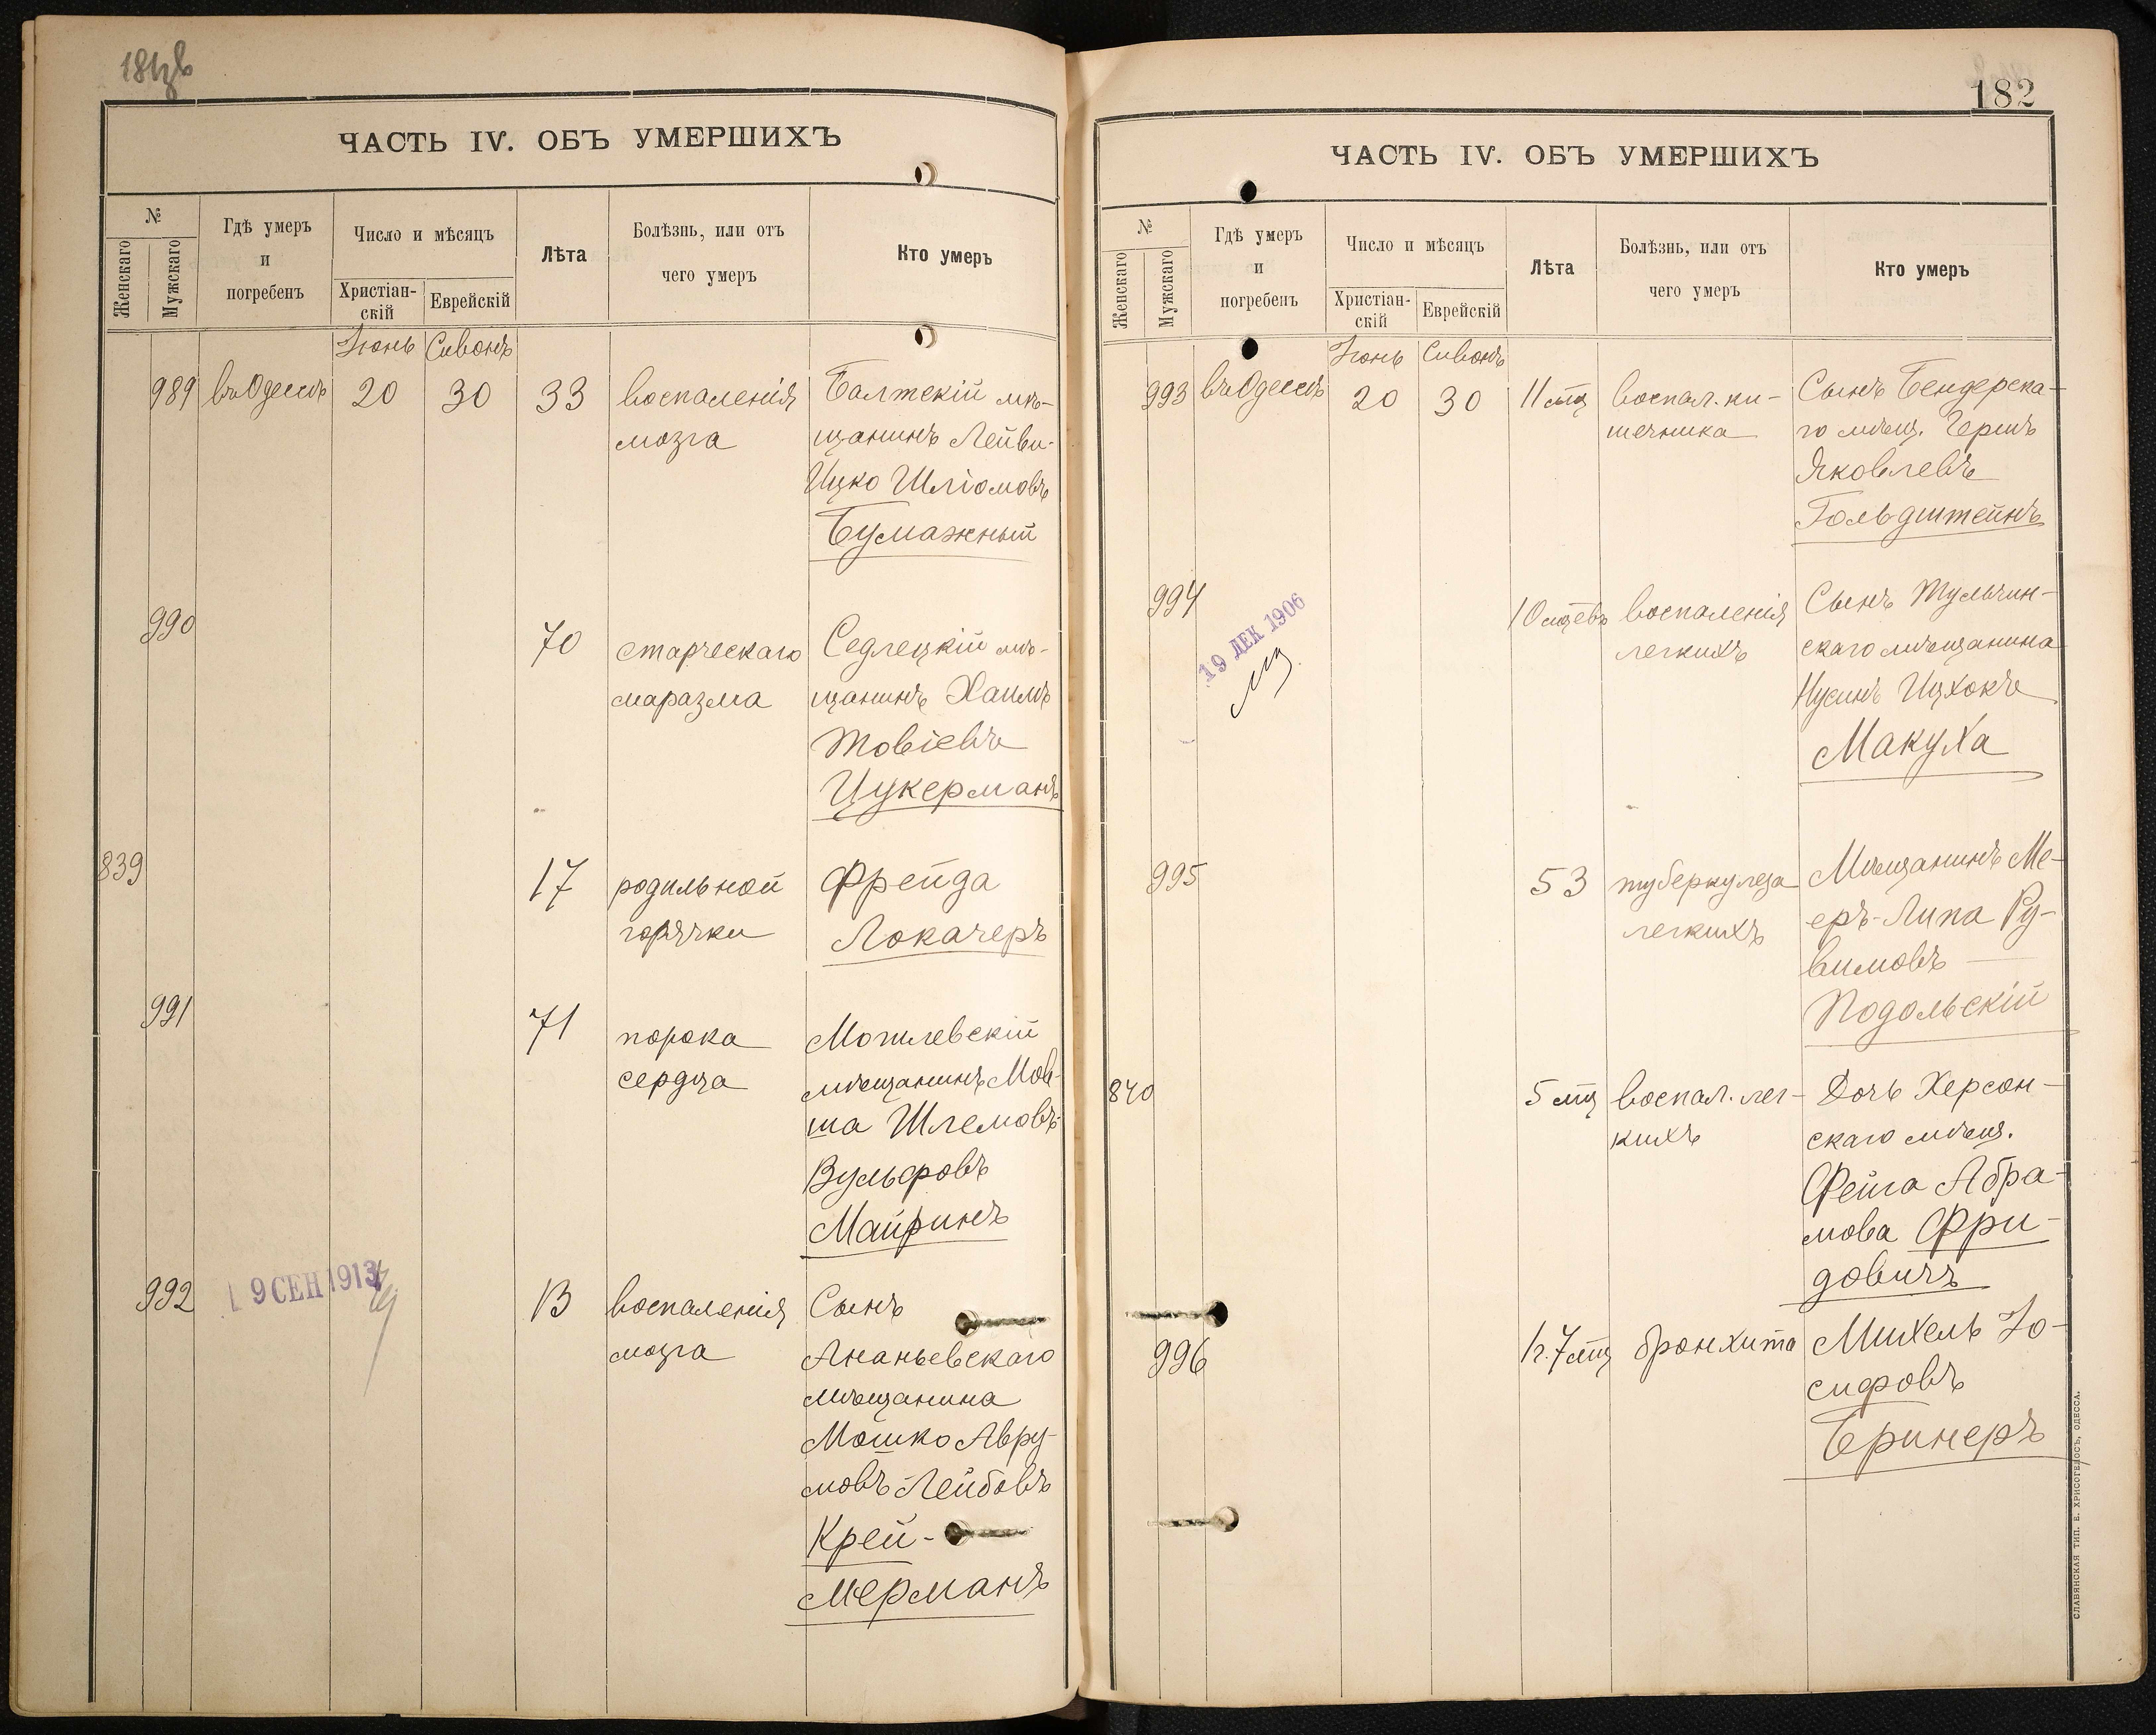 ЧАСТЬ IV. ОБЪ УМЕРШИХЪ
№
Женскаго
Мужскаго
Гдѣ умеръ
и
погребенъ
Число и мѣсяцъ
Христіан-
скій
Еврейскій
Лѣта
Болѣзнь, или отъ
чего умеръ
Кто умеръ
Іюнь Сивонъ
989 въ Одессѣ 20 30 33 воспаленія Балтскій мѣ-
мозга щанинъ Лейви-
Ицко Шліомовъ
Бумажный
990 70 старческаго Седлецкій мѣ-
маразма щанинъ Хаимъ
Товіевъ
Цукерманъ
839 17 родильной Фрейда
горячки Локачеръ
991 71 порока Могилевскій
сердца мѣщанинъ Мов-
ша Шлемовъ-
Вульфовъ
Майринъ
992 9 СЕН 1913 13 воспаленія Сынъ
мозга Ананьевскаго
мѣщанина
Мошко Авру-
мовъ-Лейбовъ
Крей-
мерманъ
182
ЧАСТЬ IV. ОБЪ УМЕРШИХЪ
№
Женскаго
Мужскаго
Гдѣ умеръ
и
погребенъ
Число и мѣсяцъ
Христіан-
скій
Еврейскій
Лѣта
Болѣзнь, или отъ
чего умеръ
Кто умеръ
Іюнь Сивонъ
993 въ Одессѣ 20 30 11 мц воспал. ки- Сынъ Бендерска-
шечника го мѣщ. Гершъ
Яковлевъ
Гольдштейнъ
994 19 ДЕК 1906 10 мцевъ воспаленія Сынъ Тульчин-
легкихъ скаго мѣщанина
Нусинъ Ицхокъ
Макуха
995 53 туберкулеза Мѣщанинъ Ме-
легкихъ еръ-Липа Ру-
вимовъ
Подольскій
840 5 мц воспал. лег- Дочь Херсон-
кихъ скаго мѣщ.
Фейга Абра-
мова Фри-
довичъ
996 1 г. 7 мц бронхита Михель Іо-
сифовъ
Бринеръ
СЛАВЯНСКАЯ ТИП. Е. ХРИСОГЕЛОСЪ, ОДЕССА.